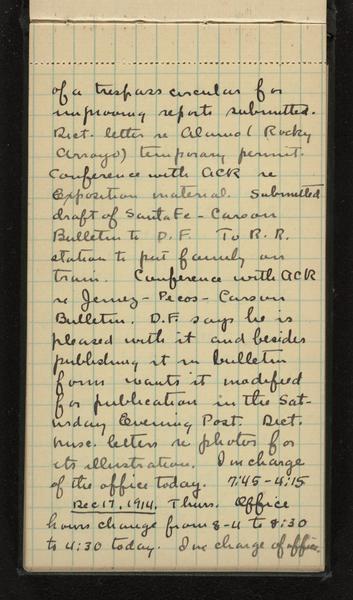 of a trespass circular for
improving reports submitted.
Dict. letter re Alamo (Rocky
Arroyo) temporary permit.
Conference with ACR re
Exposition material. Submitted
draft of Santa Fe - Carson
Bulletin to D.F. To R.R.
station to put family on
train. Conference with ACR
re Jemez - Pecos - Carson
Bulletin. D.F. says he is
pleased with it and besides
publishing it in bulletin
form wants it modified
for publication in the Sat-
urday Evening Post. Dict.
misc. letters re photos for
its illustration. In charge
of the office today. 7:45-4:15
Dec 17, 1914, Thurs. Office
hours change from 8-4 to 8:30
to 4:30 today. In charge of office.